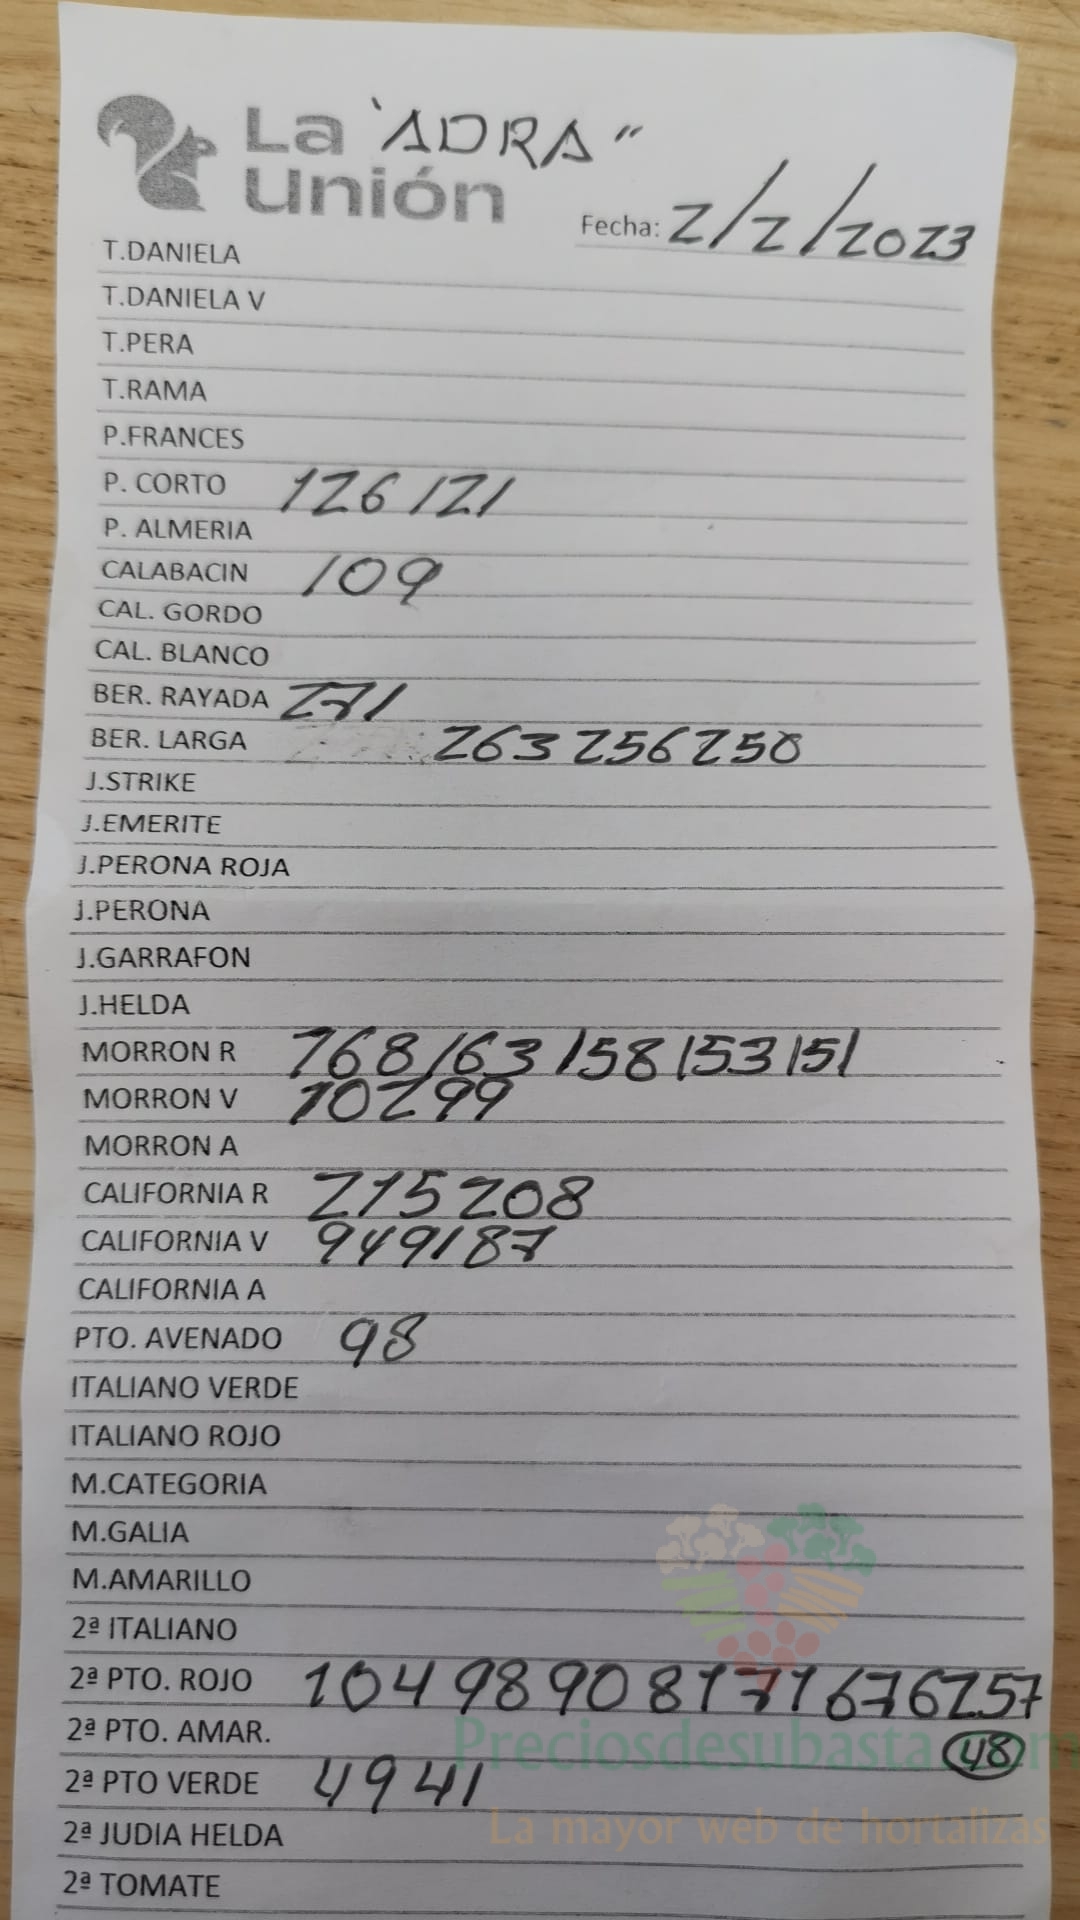 La "ADRA"
Unión
Fecha: 2/2/2023
T.DANIELA
T.DANIELA V
T.PERA
T.RAMA
P.FRANCES
P. CORTO 126 121
P. ALMERIA
CALABACIN 109
CAL. GORDO
CAL. BLANCO
BER. RAYADA 271
BER. LARGA 263 256 250
J.STRIKE
J.EMERITE
J.PERONA ROJA
J.PERONA
J.GARRAFON
J.HELDA
MORRON R 168 163 158 153 151
MORRON V 102 99
MORRON A
CALIFORNIA R 215 208
CALIFORNIA V 94 91 87
CALIFORNIA A
PTO. AVENADO 98
ITALIANO VERDE
ITALIANO ROJO
M.CATEGORIA
M.GALIA
M.AMARILLO
2ª ITALIANO
2ª PTO. ROJO 104 98 90 81 71 67 62 57
2ª PTO. AMAR. 48
Preciosdesubasta.com
2ª PTO VERDE 49 41
La mayor web de hortalizas
2ª JUDIA HELDA
2ª TOMATE